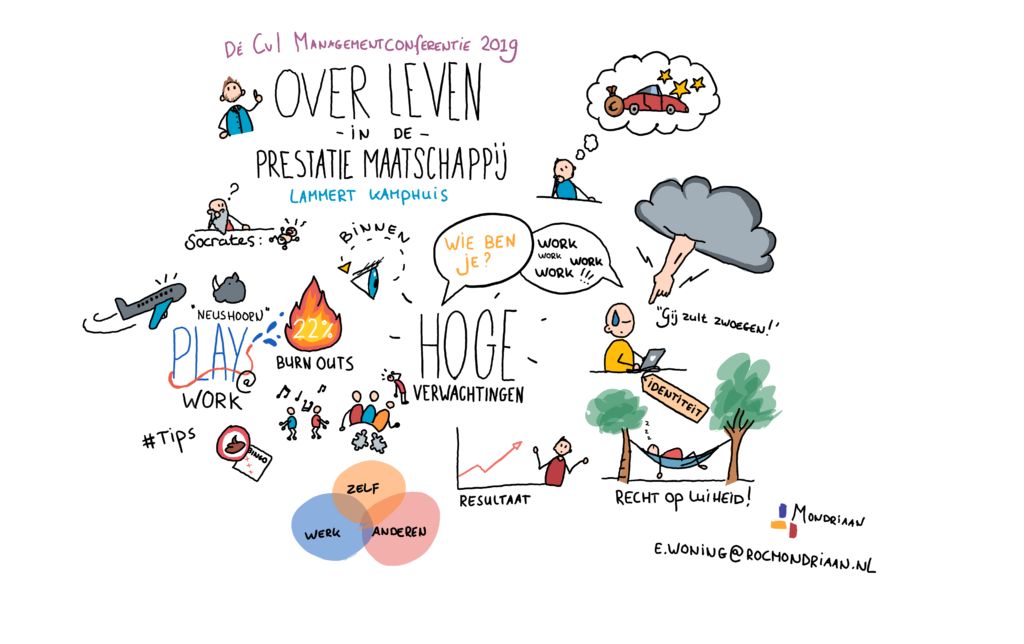 Dé CvI Managementconferentie 2019
OVER LEVEN
- in DE -
PRESTATIE MAATSCHAPPIJ
LAMMERT KAMPHUIS
€
?
Socrates:
BINNEN
WIE BEN
JE?
WORK
WORK
WORK
WORK !!!
"NEUSHOORN"
22%
BURN OUTS
PLAY
@
WORK
"HOGE"
VERWACHTINGEN
"Gij zult zwoegen!"
iDENTITEIT
z z z
#Tips
BINGO
RESULTAAT
RECHT OP LUIHEID!
ZELF
WERK
ANDEREN
MONDRIAAN
E.WONING@ROCMONDRIAAN.NL